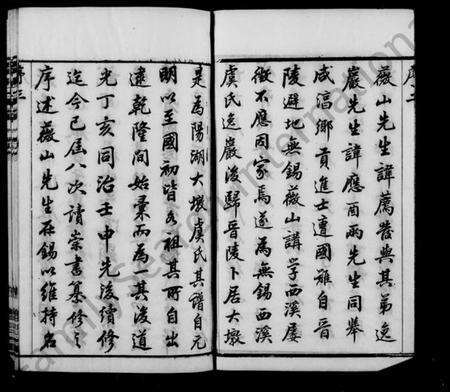 薇山先生諱薦發與其弟逸
巖先生諱應酉兩先生同舉
咸淳鄉貢進士遭國難自晉
陵避地無錫薇山講學西溪屢
徵不應因家焉遂為無錫西溪
虞氏逸巖後歸晉陵卜居大墩
是為陽湖大墩虞氏其譜自元
明以至國初皆各祖其所自出
逮乾隆間始彙而為一其後道
光丁亥同治壬申先後續修
迄今已屆八次讀崇書纂修之
序述薇山先生在錫以維持名
序三
FamilySearch International